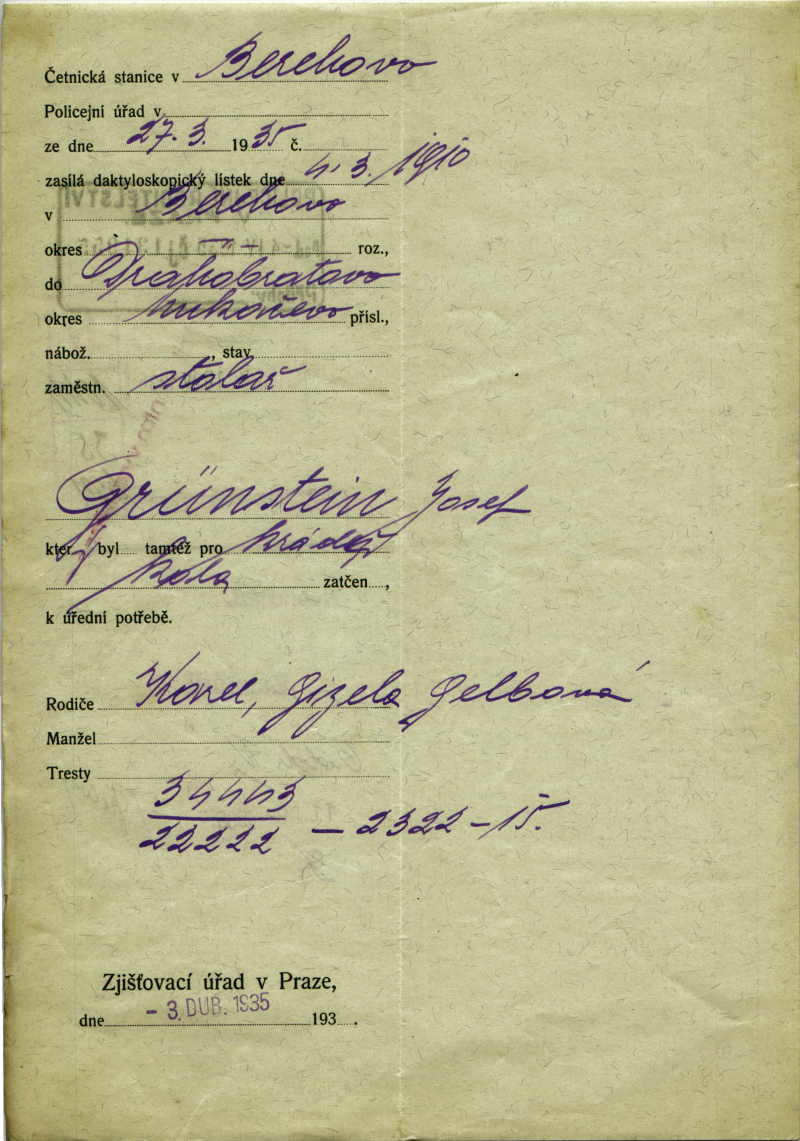 Četnická stanice v Berehovo
Policejní úřad v
ze dne 27. 3. 1935 č.
zasílá daktyloskopický lístek dne 4. 3. 1910
v Berehovo
okres — „ — roz.,
do Drahobratovo
okres Mukačevo přísl.,
nábož. , stav
zaměstn. stolař
Grünstein Josef
kter byl tamtéž pro krádež
kola zatčen ,
k úřední potřebě.
Rodiče Karel, Gizela Gelbová
Manžel
Tresty
34443
22222 — 2322 – 15.
Zjišťovací úřad v Praze,
dne - 3. DUB. 1935 193 .